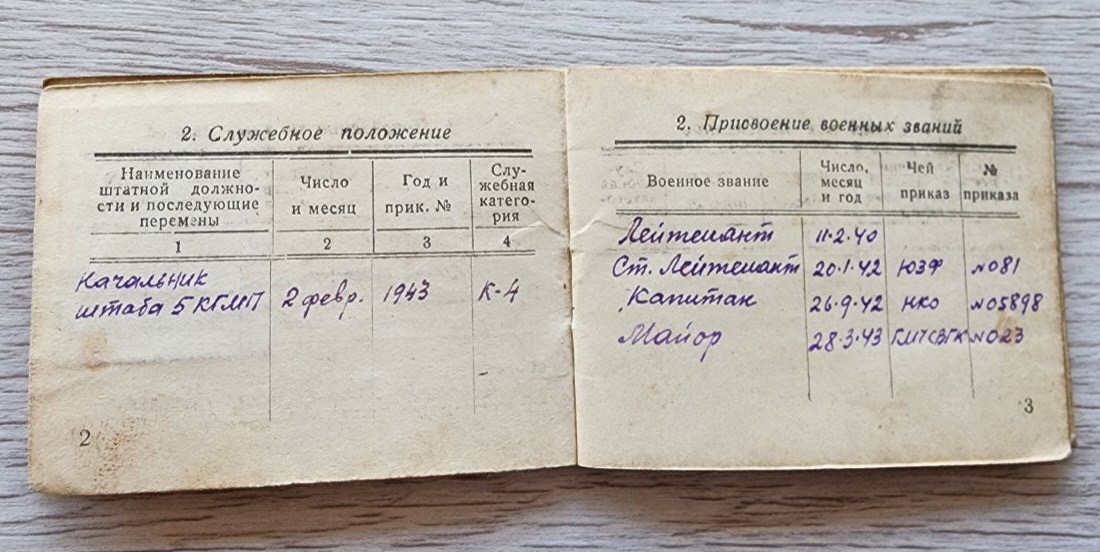 2. Служебное положение
Наименование штатной должно-сти и последующие перемены
Число и месяц
Год и прик. №
Слу-жебная катего-рия
1 2 3 4
Начальник
штаба 5 КГМП 2 февр. 1943 К-4
2
2. Присвоение военных званий
Военное звание
Число, месяц и год
Чей приказ
№ приказа
Лейтенант 11·2·40
Ст. Лейтенант 20·1·42 ЮЗФ №081
Капитан 26·9·42 НКО №05898
Майор 28·3·43 ГМЧСВГК №023
3